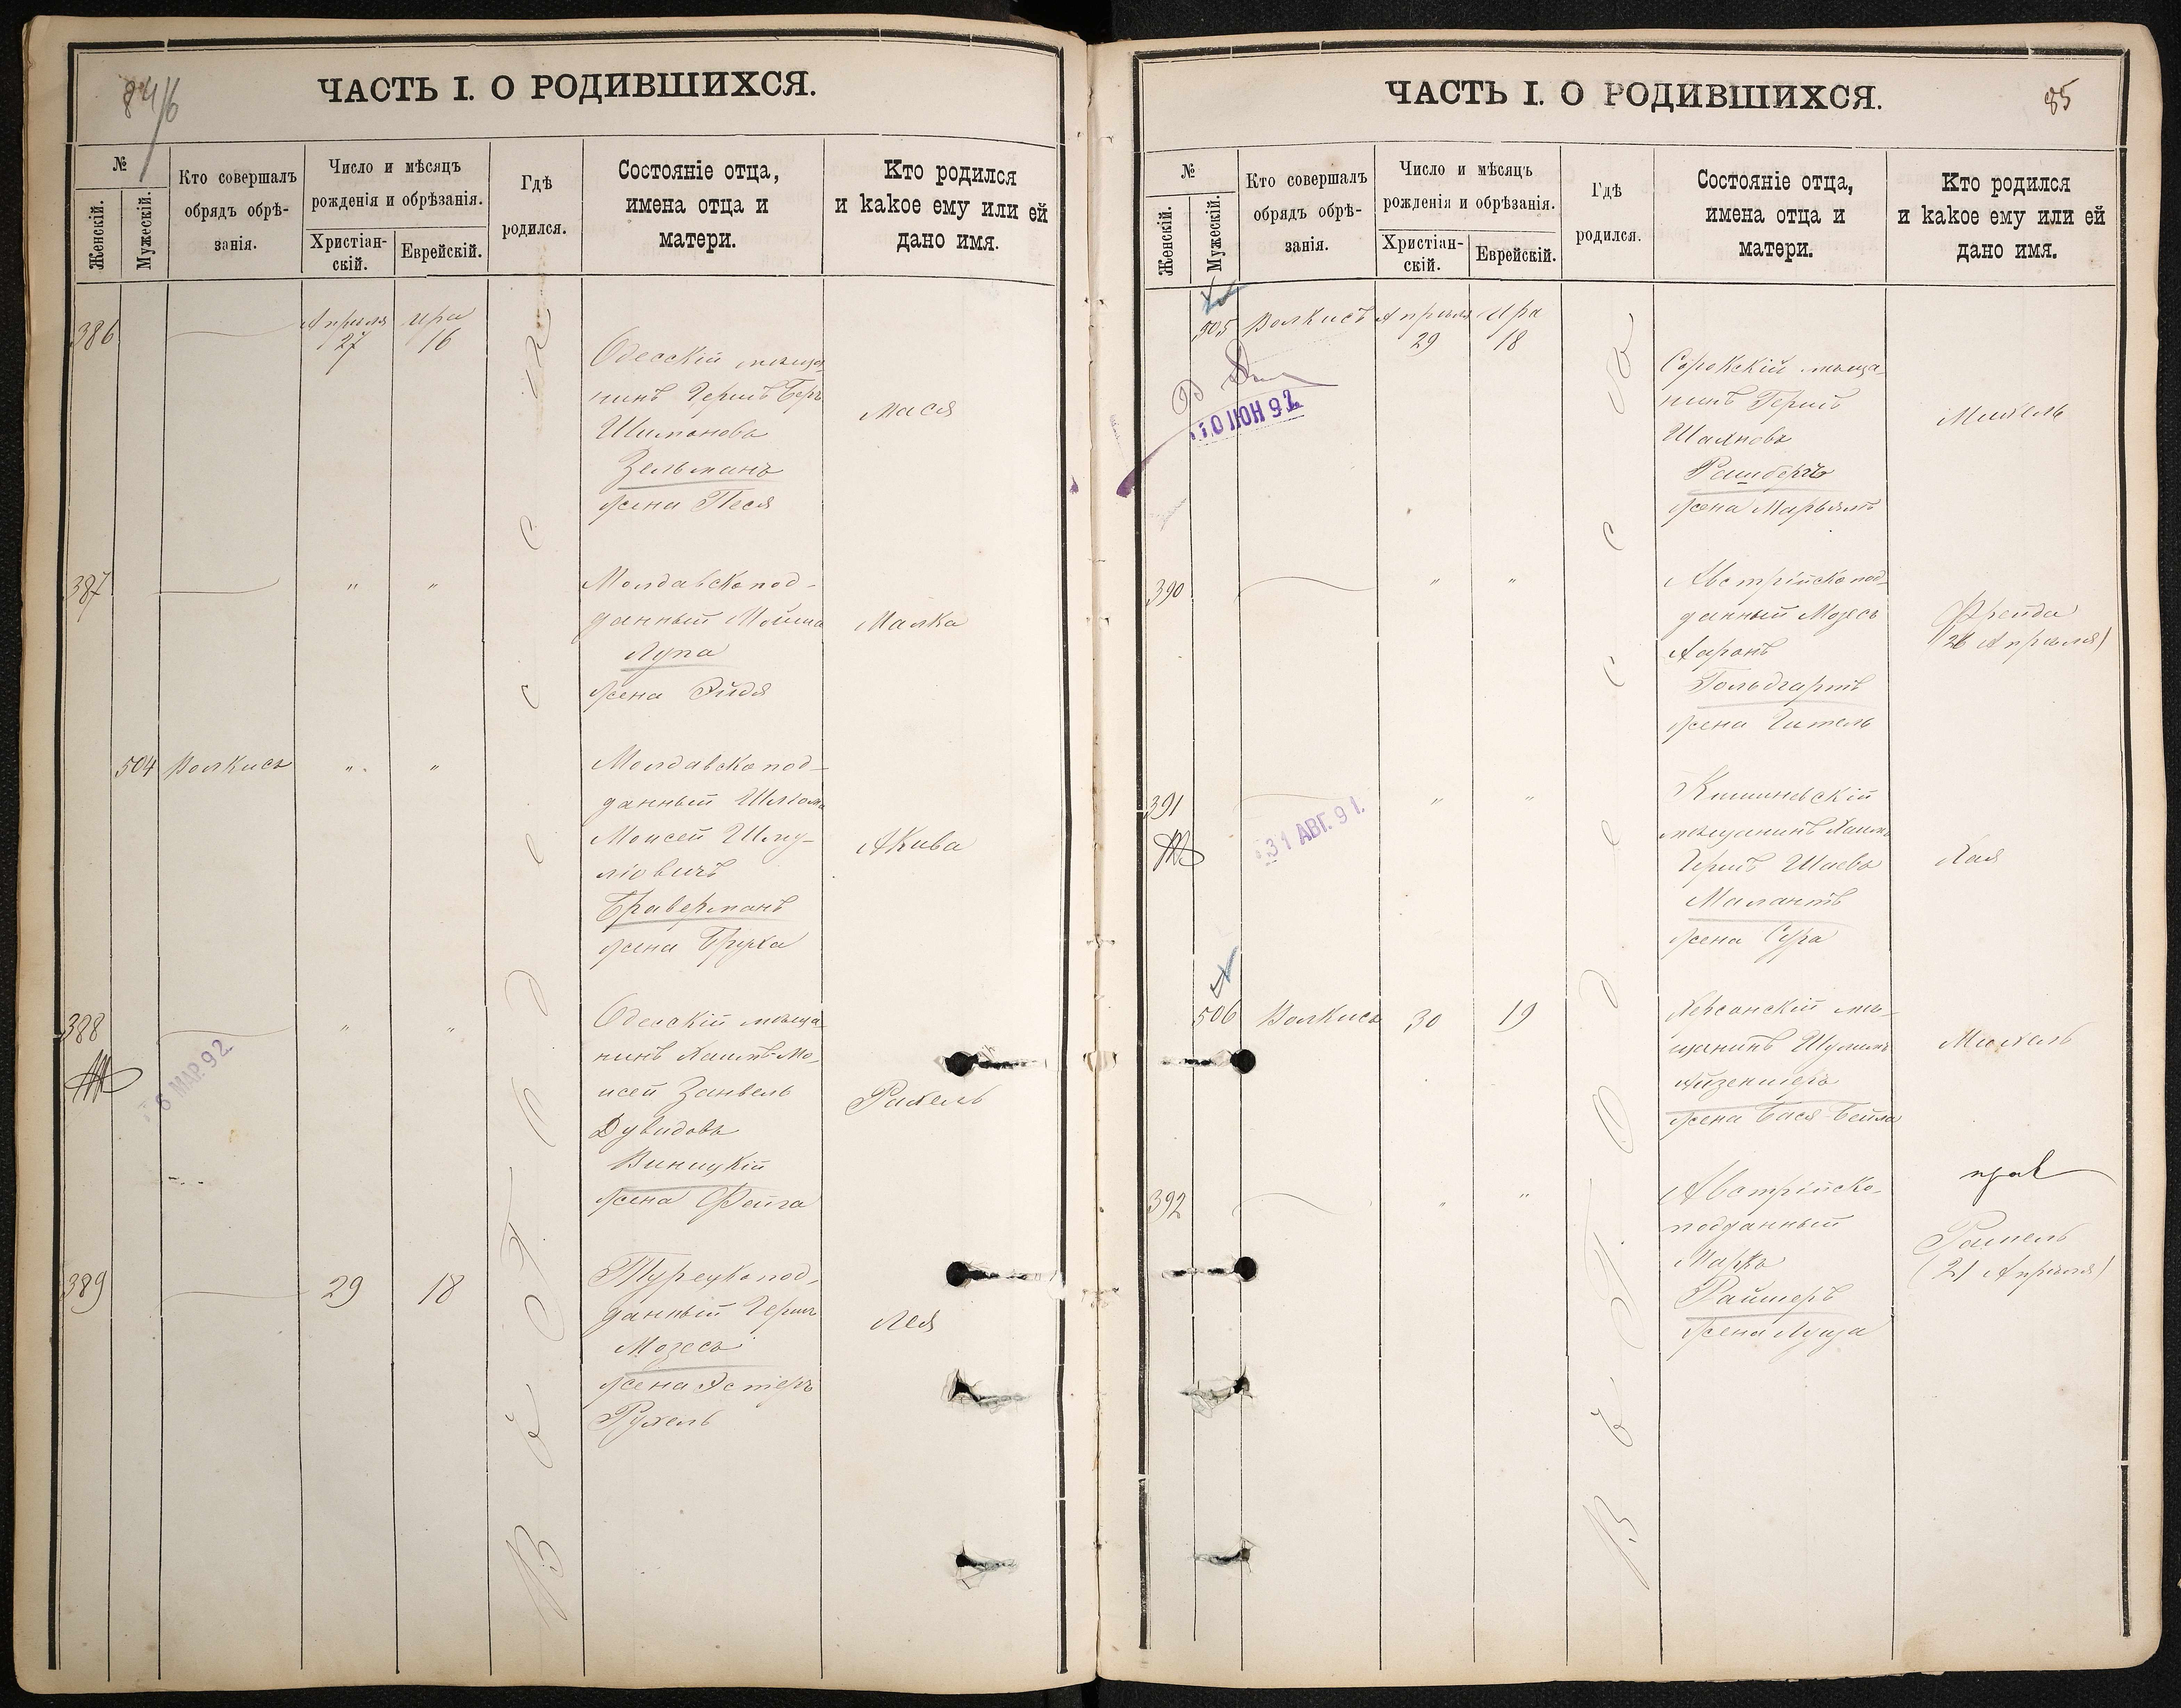 84/6
ЧАСТЬ I. О РОДИВШИХСЯ.
№
Женскій.
Мужескій.
Кто совершалъ
обрядъ обрѣ-
занія.
Число и мѣсяцъ
рожденія и обрѣзанія.
Христіан-
скій.
Еврейскій.
Гдѣ
родился.
Состояніе отца,
имена отца и
матери.
Кто родился
и какое ему или ей
дано имя.
Въ г. Одессѣ
386
Апрѣля Ира
27 16
Одесскій мѣща-
нинъ Гершъ Беръ
Шимоновъ
Зельманъ
жена Песя
Мася
387 " "
Молдавско под-
данный Мойша
Лупа
жена Эйдя
Малка
504 Волкисъ " "
Молдавско под-
данный Шліома
Моисей Шму-
ліовичъ
Браверманъ
жена Бруха
Акива
388 " "
6 МАР. 92.
Одесскій мѣща-
нинъ Хаимъ-Мо-
исей Занвель
Дувидовъ
Виницкій
жена Фейга
Рахель
389 29 18
Турецко под-
данный Гершъ
Мозесъ
жена Эстеръ
Рухель
Лея
ЧАСТЬ I. О РОДИВШИХСЯ.
85
№
Женскій.
Мужескій.
Кто совершалъ
обрядъ обрѣ-
занія.
Число и мѣсяцъ
рожденія и обрѣзанія.
Христіан-
скій.
Еврейскій.
Гдѣ
родился.
Состояніе отца,
имена отца и
матери.
Кто родился
и какое ему или ей
дано имя.
Въ г. Одесса
505 Волкисъ Апрѣля Ира
29 18
10 ІЮН 92.
Сорокскій мѣща-
нинъ Гершъ
жена Марьямъ
Михель
390 " "
Австрійско под-
данный Мозесъ
Ааронъ
Гольдгартъ
жена Гитель
Фрейда
(26 Апрѣля)
391 " "
31 АВГ. 91.
Кишиневскій
мѣщанинъ Хаимъ
Гершъ Шаевъ
Малантъ
жена Сура
Хая
506 Волкисъ 30 19
Херсонскій мѣ-
щанинъ Шулимъ
Айзеншеръ
жена Бася-Бейла
Михель
392 " "
Австрійско-
подданный
Марко
Раймеръ
жена Луца
Рашель
(21 Апрѣля)